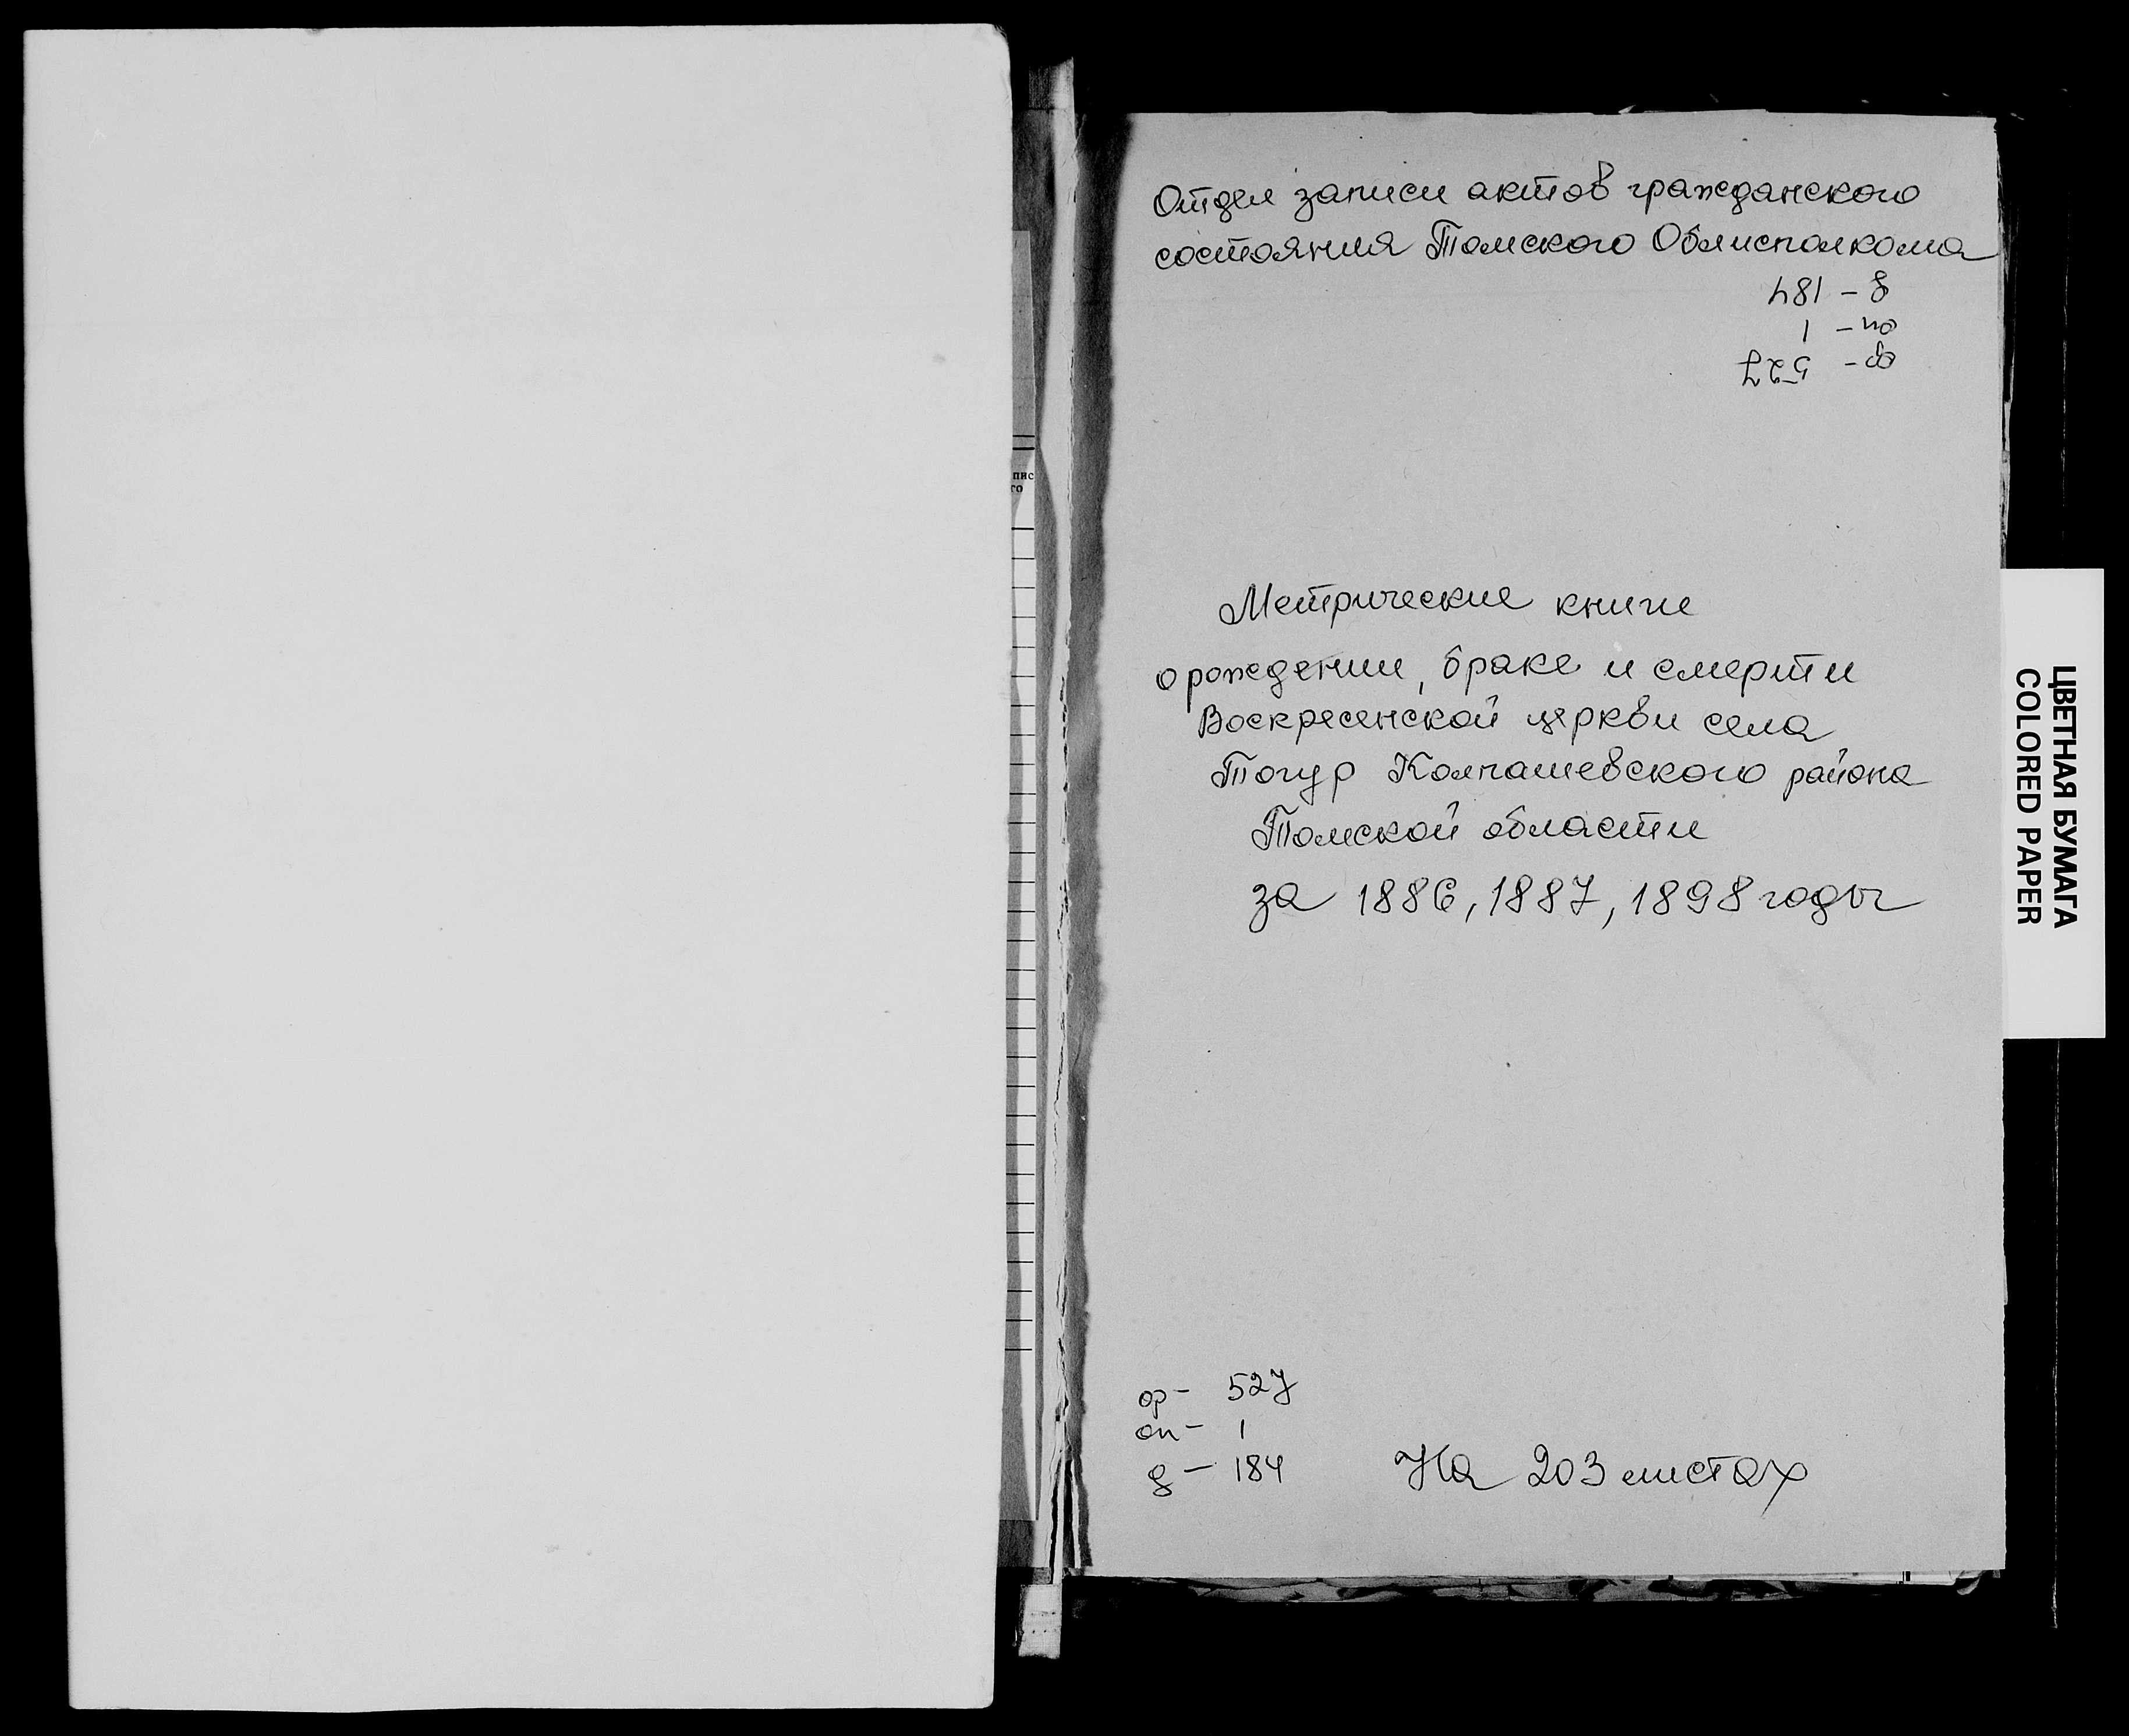 Отдел записи актов гражданского
состояния Томского Облисполкома
д - 184
оп - 1
ф - 527
Метрические книги
о рождении, браке и смерти
Воскресенской церкви села
Тогур Колпашевского района
Томской области
за 1886, 1887, 1898 годы
ф - 527
оп - 1
д - 184
На 203 листах
ЦВЕТНАЯ БУМАГА
COLORED PAPER
пис
го